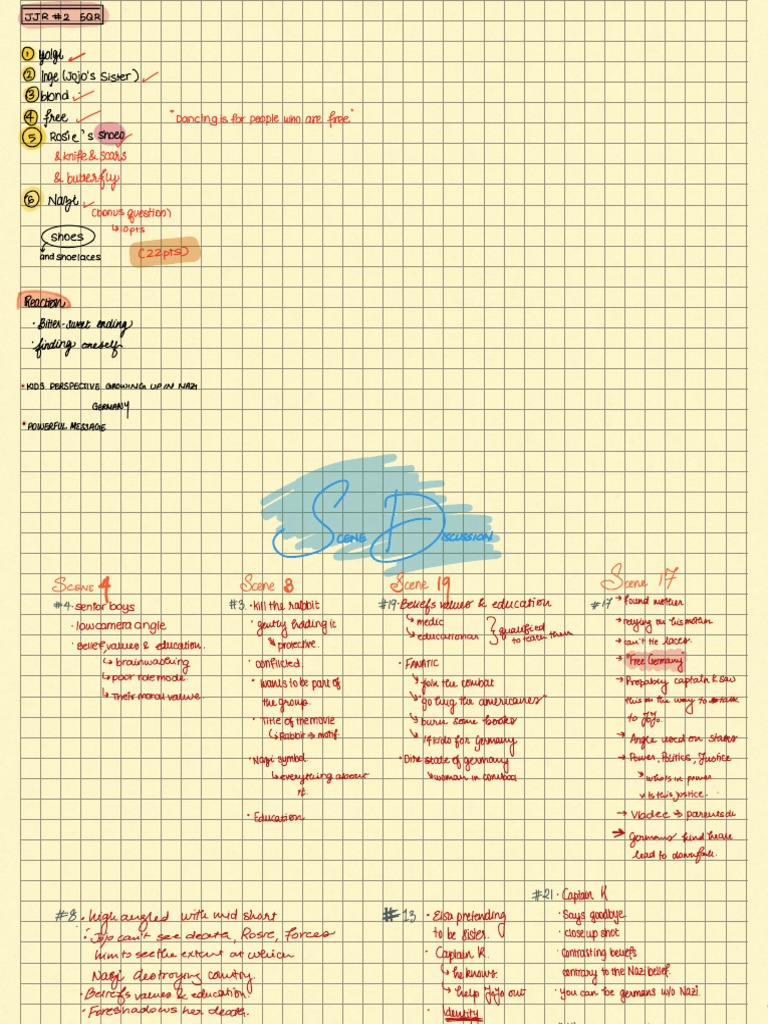 JJR #2 5QR
① yolgi
② Inge (Jojo's Sister)
③ blond
④ free
"Dancing is for people who are free."
⑤ Rosie's shoes
& knife & scars
& butterfly
⑥ Nazi
(bonus question)
↳ 10pts
shoes
and shoelaces
(22pts)
Reaction
· Bitter-sweet ending
· finding oneself
· KIDS PERSPECTIVE GROWING UP IN NAZI
GERMANY
· POWERFUL MESSAGE
SCENE DISCUSSION
SCENE 4
#4 · senior boys
· low camera angle
· belief, values & education.
↳ brainwashing
↳ poor role model
↳ Their moral value
Scene 3
#3 · kill the rabbit
· gently holding it
↳ protective.
· conflicted
· wants to be part of
the group.
· Title of the movie
↳ Rabbit → motif
· Nazi symbol
↳ everything about
it.
· Education.
Scene 19
#19 · Beliefs values & education
↳ medic
↳ educational
qualified
to teach them
· FANATIC
↳ join the combat
↳ "go hug the americans"
↳ burn some books
↳ 14 kids for Germany
· Dire state of germany
↳ woman in combat
Scene 17
#17 → found mother
→ relying on his mother
→ can't tie laces.
→ "Free Germany"
→ Propably captain K saw
this on the way to talk
to JoJo.
→ Angle used on stairs
→ Power, Politics, Justice
↘ who's in power
↘ Is this justice.
→ Germans fund heare
lead to downfall.
#8 · high angled with mid short
· Jojo can't see death, Rosie, Forces
him to see the extent at which
Nazi destroying country.
· Beliefs values & education.
· Foreshadows her death.
#13 · Elsa pretending
to be sister.
· Captain K.
↳ he knows.
↳ help JoJo out
· identity
#21 · Captain K
· Says goodbye
· close up shot
· contrasting beliefs
contrary to the Nazi belief.
· you can be germans w/o Nazi.